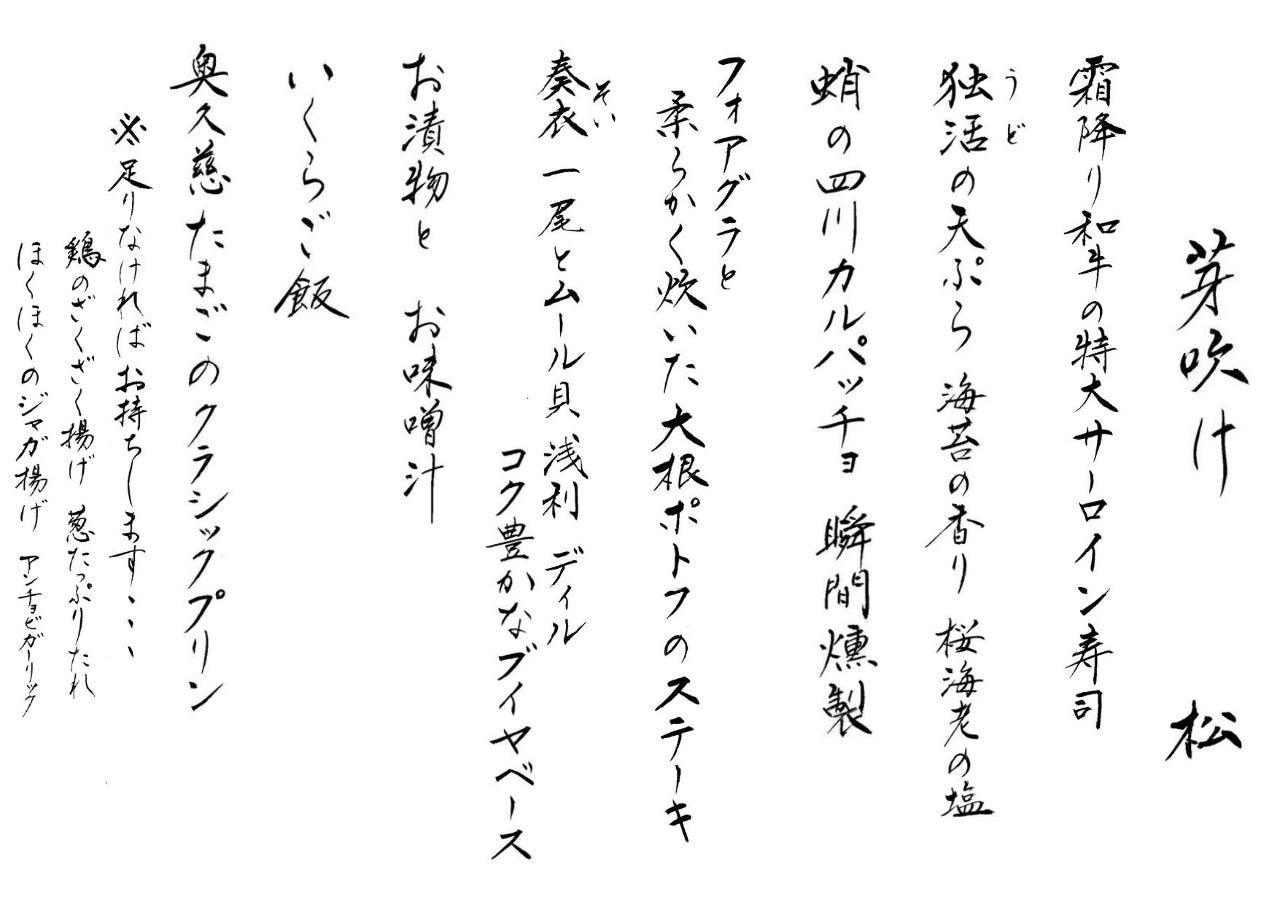 芽吹け 松
霜降り和牛の特大サーロイン寿司
独活の天ぷら 海苔の香り 桜海老の塩
うど
蛸の四川カルパッチョ 瞬間燻製
フォアグラと
柔らかく炊いた大根ポトフのステーキ
奏衣一尾とムール貝 浅利 ディル
そい
コク豊かなブイヤベース
お漬物と お味噌汁
いくらご飯
奥久慈たまごのクラシックプリン
※足りなければお持ちします、、、
鶏のざくざく揚げ 葱たっぷりたれ
ほくほくのジャガ揚げ アンチョビガーリック